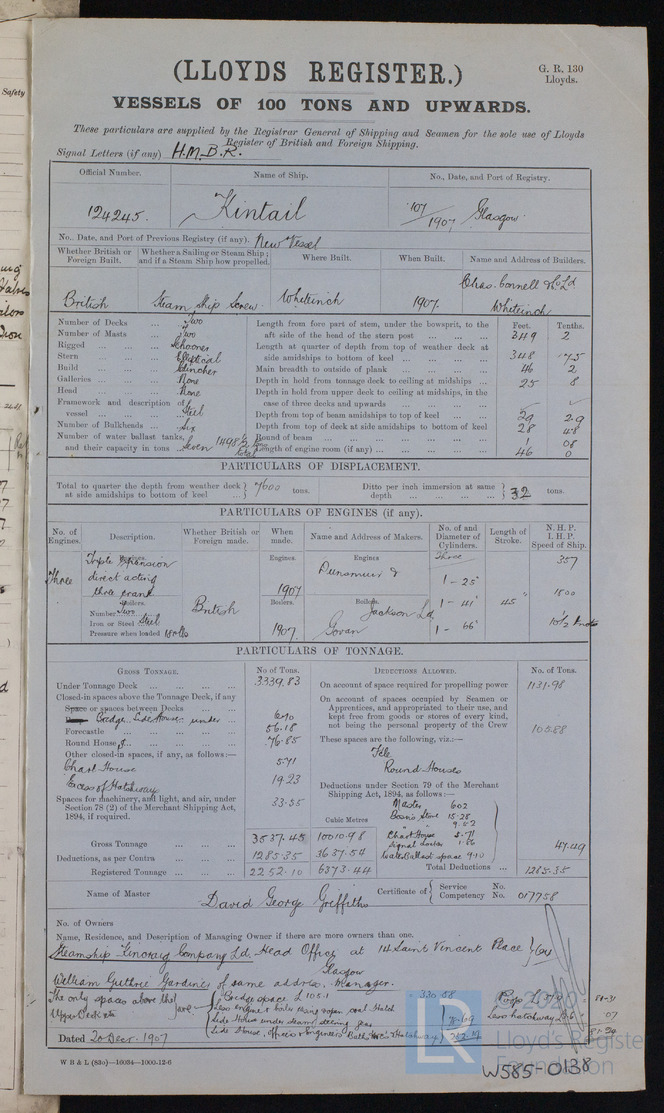 Safety
(LLOYDS REGISTER.)
G. R. 130
Lloyds.
VESSELS OF 100 TONS AND UPWARDS.
These particulars are supplied by the Registrar General of Shipping and Seamen for the sole use of Lloyds
Register of British and Foreign Shipping.
Signal Letters (if any) H.M.B.R.
Official Number. Name of Ship. No., Date, and Port of Registry.
124245. Kintail 107/1907 Glasgow
No., Date, and Port of Previous Registry (if any). New Vessel
Whether British or Foreign Built. Whether a Sailing or Steam Ship; and if a Steam Ship how propelled. Where Built. When Built. Name and Address of Builders.
British Steam Ship Screw Whiteinch 1907 Chas. Connell & Co Ld Whiteinch
Number of Decks ... Two
Number of Masts ... Two
Rigged ... Schooner
Stern ... Elliptical
Build ... Clincher
Galleries ... None
Head ... None
Framework and description of vessel ... Steel
Number of Bulkheads ... Six
Number of water ballast tanks, and their capacity in tons ... Seven 1498½ tons total
Feet. Tenths.
Length from fore part of stem, under the bowsprit, to the aft side of the head of the stern post ... 349 2
Length at quarter of depth from top of weather deck at side amidships to bottom of keel ... 348 .75
Main breadth to outside of plank ... 46 2
Depth in hold from tonnage deck to ceiling at midships ... 25 8
Depth in hold from upper deck to ceiling at midships, in the case of three decks and upwards ...
Depth from top of beam amidships to top of keel ... 29 29
Depth from top of deck at side amidships to bottom of keel 28 48
Round of beam ... 1 08
Length of engine room (if any) ... 46 0
PARTICULARS OF DISPLACEMENT.
Total to quarter the depth from weather deck at side amidships to bottom of keel ... 7600 tons.
Ditto per inch immersion at same depth ... 32 tons.
PARTICULARS OF ENGINES (if any).
No. of Engines. Description. Whether British or Foreign made. When made. Name and Address of Makers. No. of and Diameter of Cylinders. Length of Stroke. N. H. P. I. H. P. Speed of Ship.
Engines. Engines. Engines
Three Triple Expansion direct acting three crank British 1907 Dunsmuir & Three 357
1 - 25 1800
Boilers. Boilers. Boilers.
Number Two Jackson Ld 1 - 41 45" 10½ knots
Iron or Steel Steel
Pressure when loaded 180 lbs 1907 Govan 1 - 66"
PARTICULARS OF TONNAGE.
GROSS TONNAGE. No of Tons.
Under Tonnage Deck ... 3339.83
Closed-in spaces above the Tonnage Deck, if any
Space or spaces between Decks ...
Bridge, Side Houses under ... 6.70
Forecastle ... 56.18
Round House ... 76.85
Other closed-in spaces, if any, as follows:—
Chart House 5.71
Excess of Hatchways 19.23
Spaces for machinery, and light, and air, under Section 78 (2) of the Merchant Shipping Act, 1894, if required. 33.55
Cubic Metres
Gross Tonnage ... 3537.45 10010.98
Deductions, as per Contra ... 1285.35 3637.54
Registered Tonnage ... 2252.10 6373.44
DEDUCTIONS ALLOWED. No. of Tons.
On account of space required for propelling power 1131.98
On account of spaces occupied by Seamen or Apprentices, and appropriated to their use, and kept free from goods or stores of every kind, not being the personal property of the Crew 105.88
These spaces are the following, viz.:—
Fcle
Round Houses
Deductions under Section 79 of the Merchant Shipping Act, 1894, as follows:—
Master 6.02
Bosn's Store 15.28
9.52
Chart House 5.71
Signal Locker 1.86
Water Ballast space 9.10
47.49
Total Deductions ... 1285.35
Name of Master David George Griffiths
Certificate of Service No. Competency No. 017758
No. of Owners
Name, Residence, and Description of Managing Owner if there are more owners than one.
Steamship Kincraig Company Ld. Head Office at 14 Saint Vincent Place Glasgow } 64
William Guthrie Gardiner of same address, Manager.
The only spaces above the Upper Deck etc are
Bridge space L 105.1 330.88
Less engine & boiler casing & open coal Hatch
Side House under steam steering gear
Side House, officers & engineers
Poop
Less hatchway
Dated 20 Dec. 1907
W B & L (83o)—16034—1000-12-6
LR
Lloyd's Register
Foundation
W585-0138